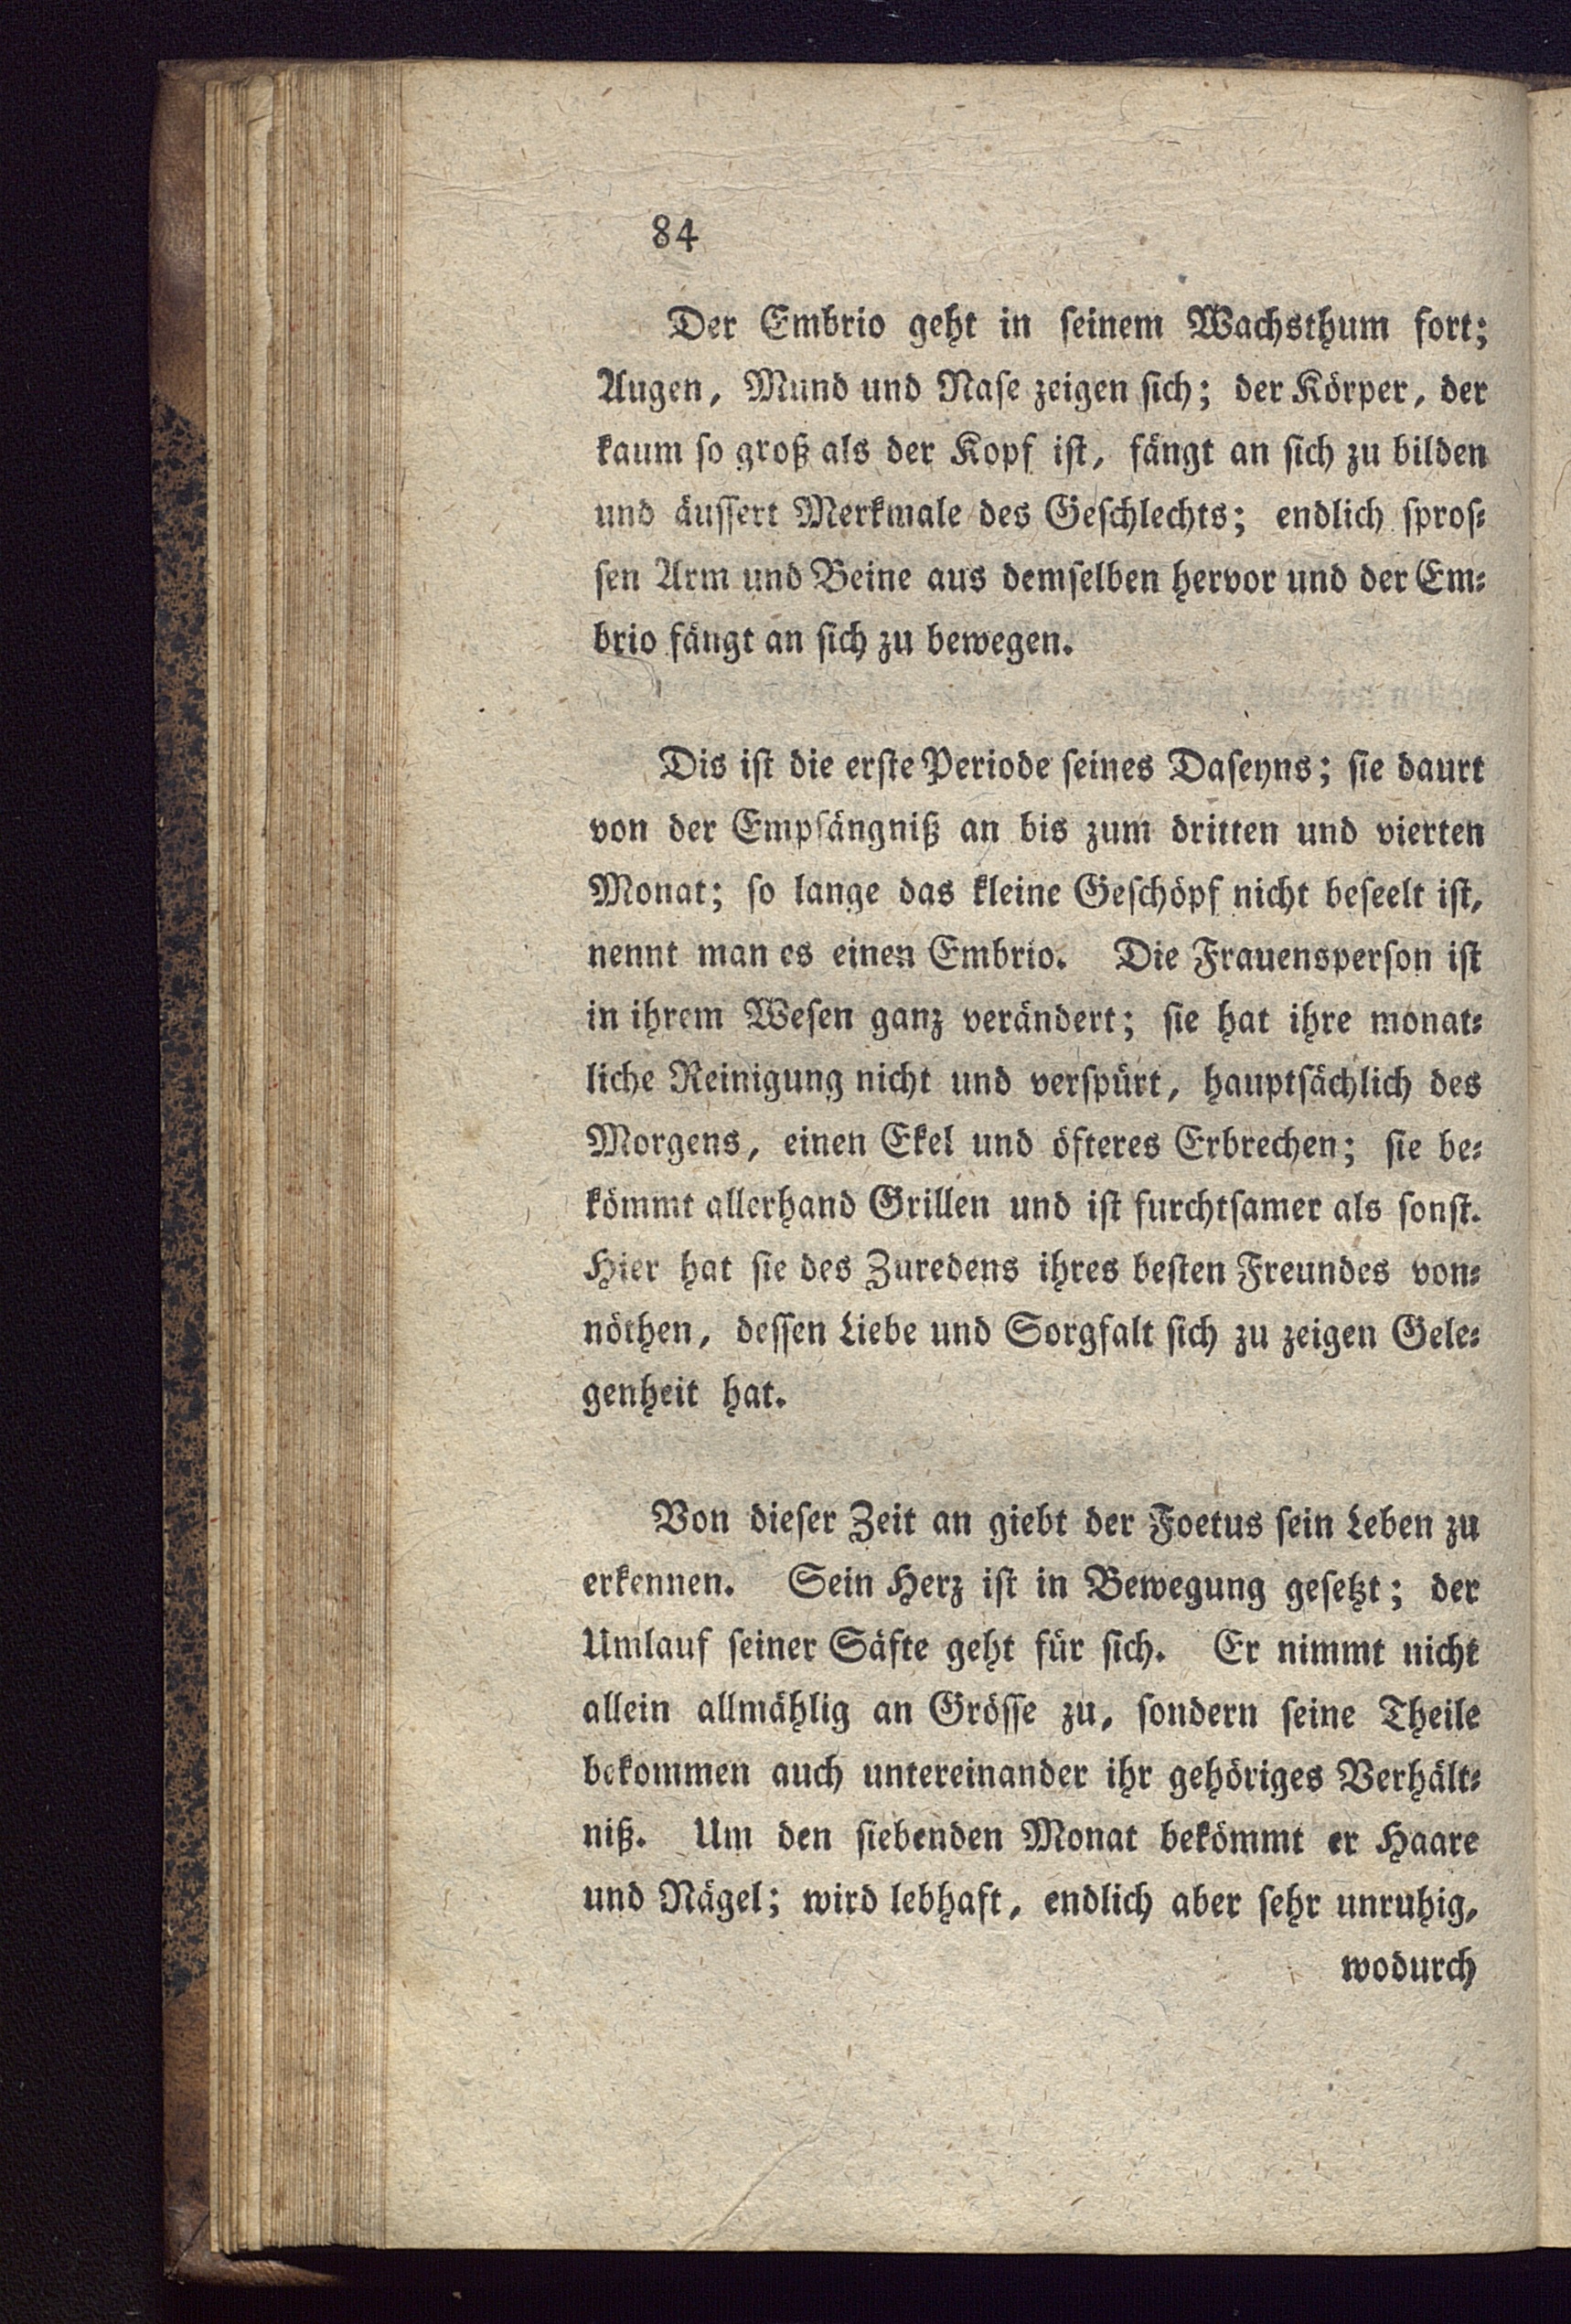 84
Der Embrio geht in ſeinem Wachsthum fort;
Augen, Mund und Naſe zeigen ſich; der Körper, der
kaum ſo groß als der Kopf iſt, fängt an ſich zu bilden
und äuſſert Merkmale des Geſchlechts; endlich ſproſ⸗
ſen Arm und Beine aus demſelben hervor und der Em⸗
brio fängt an ſich zu bewegen.
Dis iſt die erſte Periode ſeines Daſeyns; ſie daurt
von der Empfängniß an bis zum dritten und vierten
Monat; ſo lange das kleine Geſchöpf nicht beſeelt iſt,
nennt man es einen Embrio. Die Frauensperſon iſt
in ihrem Weſen ganz verändert; ſie hat ihre monat⸗
liche Reinigung nicht und verſpürt, hauptſächlich des
Morgens, einen Ekel und öfteres Erbrechen; ſie be⸗
kömmt allerhand Grillen und iſt furchtſamer als ſonſt.
Hier hat ſie des Zuredens ihres beſten Freundes von⸗
nöthen, deſſen Liebe und Sorgfalt ſich zu zeigen Gele⸗
genheit hat.
Von dieſer Zeit an giebt der Foetus ſein Leben zu
erkennen. Sein Herz iſt in Bewegung geſetzt; der
Umlauf ſeiner Säfte geht für ſich. Er nimmt nicht
allein allmählig an Gröſſe zu, ſondern ſeine Theile
bekommen auch untereinander ihr gehöriges Verhält⸗
niß. Um den ſiebenden Monat bekömmt er Haare
und Nägel; wird lebhaft, endlich aber ſehr unruhig,
wodurch